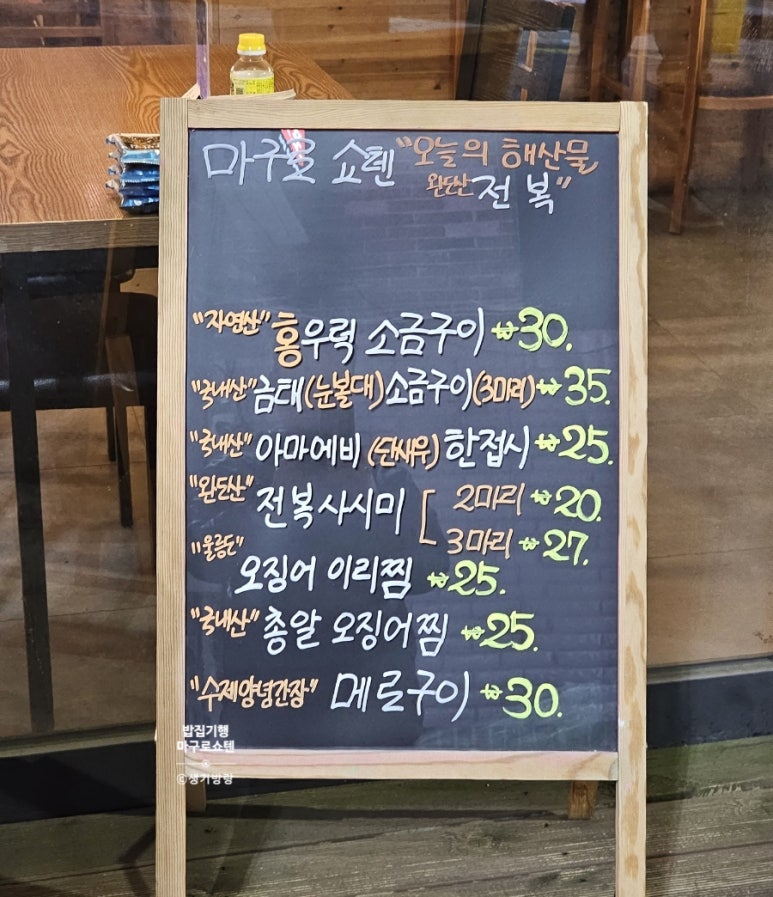 마구로 쇼텐 "오늘의 해산물
완도산 전복"
"자연산" 홍우럭 소금구이 ₩30.
"국내산" 금태(눈볼대)소금구이(3마리) ₩35.
"국내산" 아마에비 (단새우) 한접시 ₩25.
"완도산" 전복사시미 [ 2마리 ₩20.
3마리 ₩27.
"울릉도" 오징어 이리찜 ₩25.
"국내산" 총알 오징어찜 ₩25.
"수제양념간장" 메로구이 ₩30.
밥집기행
마구로쇼텐
@
ⓒ생기방랑